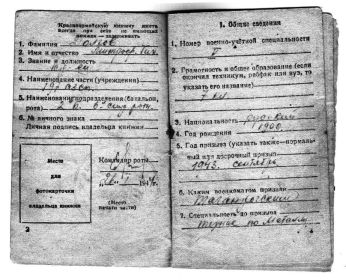 Красноармейскую книжку иметь
всегда при себе. Не имеющих
книжек — задерживать
1. Фамилия
2. Имя и отчество
3. Звание и должность
4. Наименование части (учреждения)
5. Наименование подразделения (батальон,
рота)
6. № личного знака
Личная подпись владельца книжки
Место
для
фотокарточки
владельца книжки
Командир роты
(Место
печати части)
2
I. Общие сведения
1. Номер военно-учётной специальности
2. Грамотность и общее образование (если
окончил техникум, рабфак или вуз, то
указать его название)
7 кл.
3. Национальность русский
4. Год рождения 1900.
5. Год призыва (указать также—нормаль-
ный или досрочный призыв)
1943. сентябрь
6. Каким военкоматом призван
Таганрогский
7. Специальность до призыва
по металлу
3